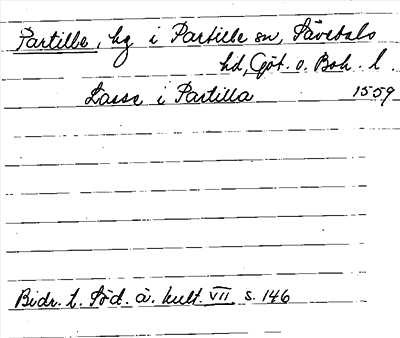 Partille, hg i Partille sn, Sävedals
hd, Göt. o. Boh. l.
Lasse i Partilla 1559
Bidr. t. Söd. å. kult. VII s. 146